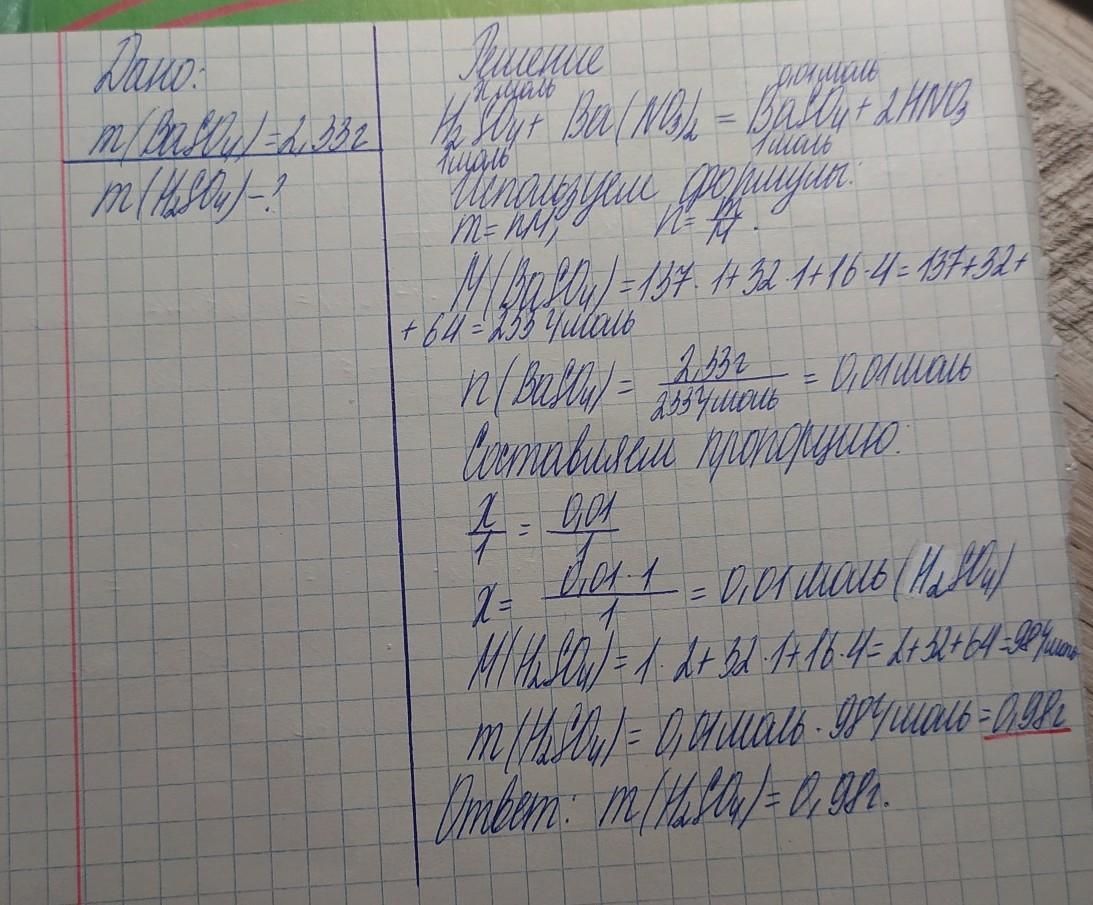 Дано:
m(BaSO₄)=2,33г
m(H₂SO₄)-?
Решение
x моль 0,01моль
H₂SO₄ + Ba(NO₃)₂ = BaSO₄ + 2HNO₃
1моль 1моль
Используем формулы:
m = nM; n = m/M.
M(BaSO₄) = 137·1+32·1+16·4 = 137+32+
+64 = 233 г/моль
n(BaSO₄) = 2,33г/233г/моль = 0,01моль
Составляем пропорцию:
x/1 = 0,01/1
x = 0,01·1/1 = 0,01 моль (H₂SO₄)
M(H₂SO₄) = 1·2+32·1+16·4 = 2+32+64 = 98г/моль
m(H₂SO₄) = 0,01моль·98г/моль = 0,98г
Ответ: m(H₂SO₄) = 0,98г.